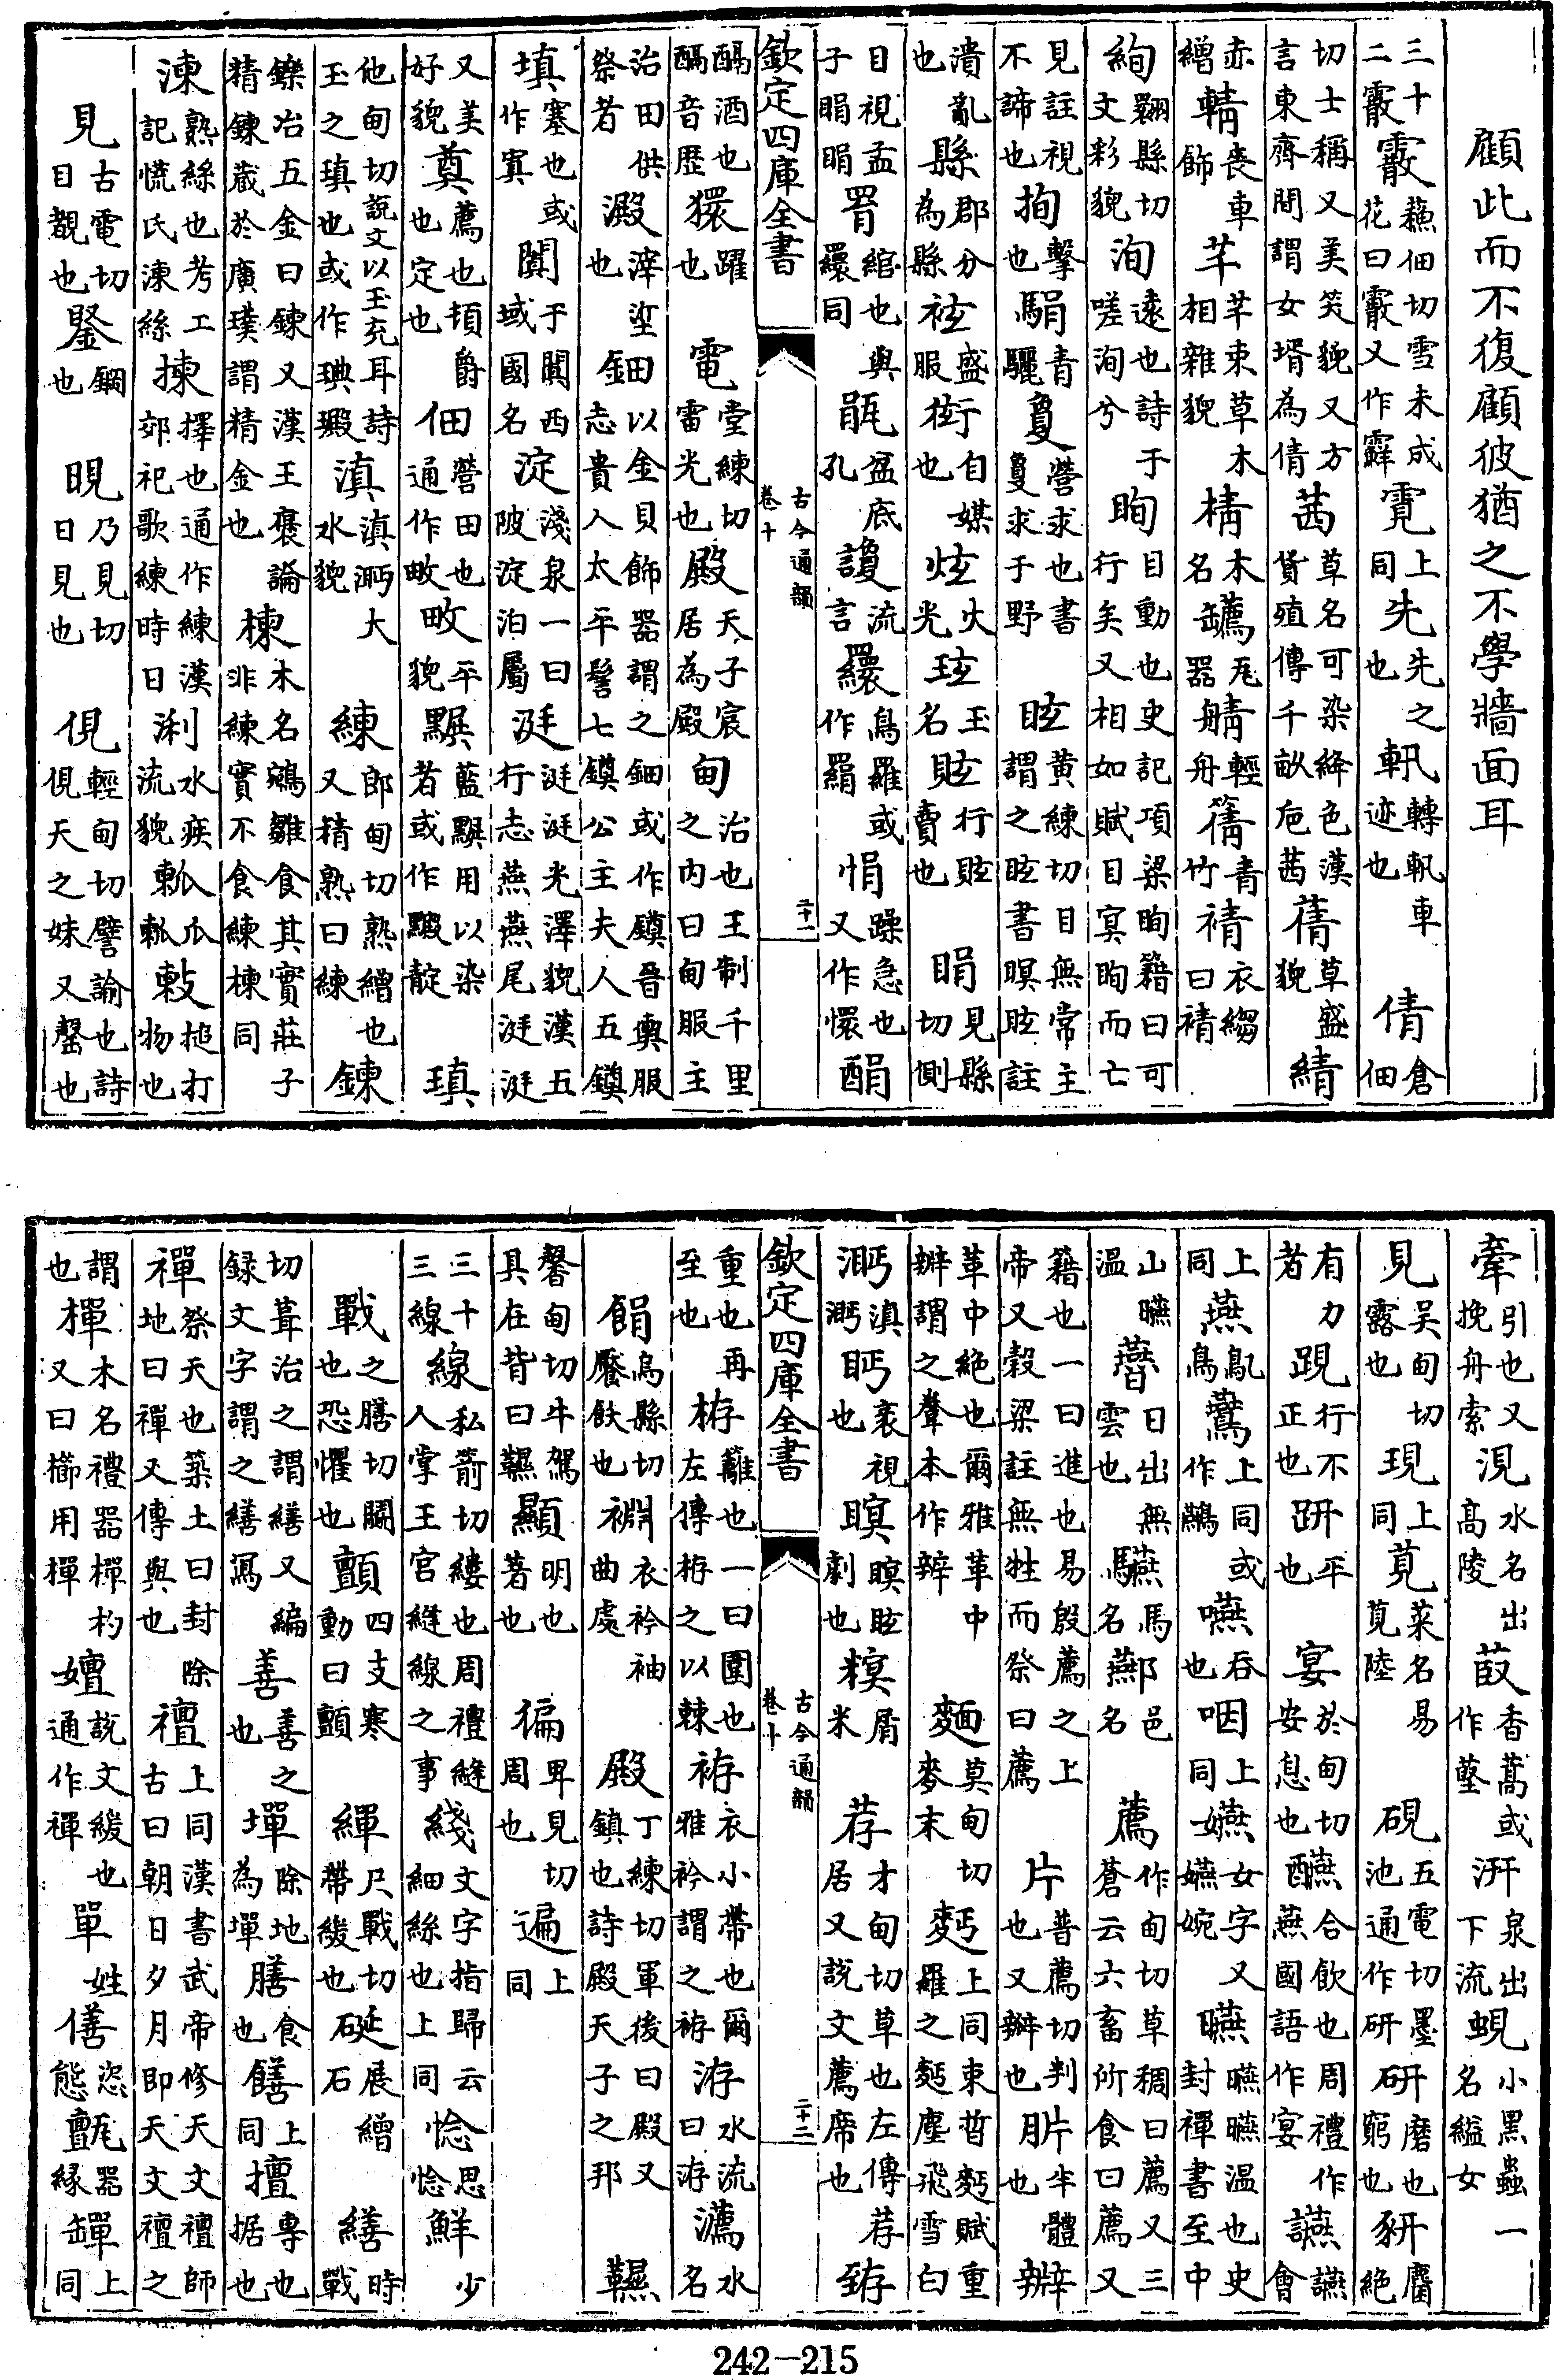 顧此而不復顧彼猶之不學牆面耳
三十二霰霰蘓佃切雪未成花曰霰又作霹霓同上先先之也軐轉軐車迹也倩倉佃
切士稱又美笑貌又方言東齊間謂女壻為倩茜草名可染絳色漢貨殖傳千畝巵茜蒨草盛貌綪
赤繒輤喪車飾芊芊束草木相雜貌棈木名瓦器輕舟篟青竹䙿衣縐曰䙿
絢翾縣切文彩貌洵遠也詩于嗟洵兮眴目動也史記項梁眴籍曰可行矣又相如賦目冥眴而亡
見註視不諦也拘擊也駽青驪敻營求也書敻求于野眩黃練切目無常主謂之眩書瞑眩註
潰亂也縣郡分為縣袨盛服衒自媒也炫火光玹玉名眩行眩賣也睊見縣切側
目視孟子睊睊罥綰也與羂同盆底孔讂流言繯鳥羅或作羂悁躁急也又作懁䣺
欽定四庫全書 古今通韻 卷十 二十一
䣺酒也䣺音歷獧躍也電堂練切雷光也殿天子宸居為殿甸治也王制千里之內曰甸服主
治田供祭者澱滓垽也鈿以金貝飾器謂之鈿或作鏌晉輿服志貴人太平髻七鏌公主夫人五鏌
填塞也或作窴闐于闐西域國名淀淺泉一曰陂淀泊屬涏涏涏光澤貌漢五行志燕燕尾涏涏
又美好貌奠薦也頓爵也定也佃營田也通作畋畋平貌藍用以染者或作靛瑱
他甸切說文以玉充耳詩玉之瑱也或作㻸瑖滇滇沔大水貌練郎甸切熟繒也又精熟曰練鍊
鑠冶五金曰鍊又漢王褒論精鍊蔵於廣璞謂精金也楝木名鵷雛食其實莊子非練實不食練楝同
湅熟絲也考工記㡆氏湅絲揀擇也通作練漢郊祀歌練時日浰水疾流貌㼓瓜㼓敕搥打物也
見古電切目覩也鋻鋼也晛乃見切日見也俔輕甸切譬諭也詩俔天之妹又罄也
牽引也又挽舟索涀水名出高陵菣香蒿或作䓳汧泉出下流蜆小黑蟲一名縊女
見吳甸切露也現上同莧菜名易莧陸硯五電切墨池通作研研磨也窮也豜麕絕
有力者䞓行不正也趼平也宴於甸切安息也醼合飲也周禮作燕國語作宴讌讌會
上同燕鳦鳥鷰上同或作鷰嚥吞也咽上同嬿女字又嬿婉曣曣曣溫也史封禪書至中
山曣溫㬫日出無雲也驠馬名酀邑名薦作甸切草稠曰薦又三蒼云六畜所食曰薦又
籍也一曰進也易殷薦之上帝又穀梁註無牲而祭曰薦片普薦切判也又瓣也胖半體也辦
革中絕也爾雅革中辦謂之韏本作辨麵莫甸切麥末麪上同束晳麪賦重羅之麪塵飛雪白
沔滇沔眄衺視也瞑瞑眩劇也糗屑米荐才甸切草也左傳荐居又說文薦席也洊
欽定四庫全書 古今通韻 卷十 二十二
重也再至也栫籬也一曰圍也左傳栫之以棘袸衣小帶也爾雅衿謂之袸洊水流曰洊瀳水名
餶烏縣切饜飫也裫衣衿袖曲處殿丁練切軍後曰殿又鎮也詩殿天子之邦韅
馨甸切牛駕具在背曰韅顯明也著也徧卑見切周也遍上同
三十三線線私箭切縷也周禮縫人掌王宮縫線之事綫文字指歸云細絲也上同惗思惗鮮少
戰之膳切鬭也恐懼也顫四支寒動曰顫繟尺戰切帶緩也硟展繒石繕時戰
切葺治之謂繕又編録文字謂之繕寫善善之也墠除地為墠膳食也饍上同擅專也据也
禪祭天也築土曰封除地曰禪又傳與也禮上同漢書武帝修天文禮師古曰朝日夕月即天文禮之
謂也樿木名禮器樿杓又曰櫛用樿嬗說文緩也通作禪單姓僐恣態㼾瓦器緣㼾上同